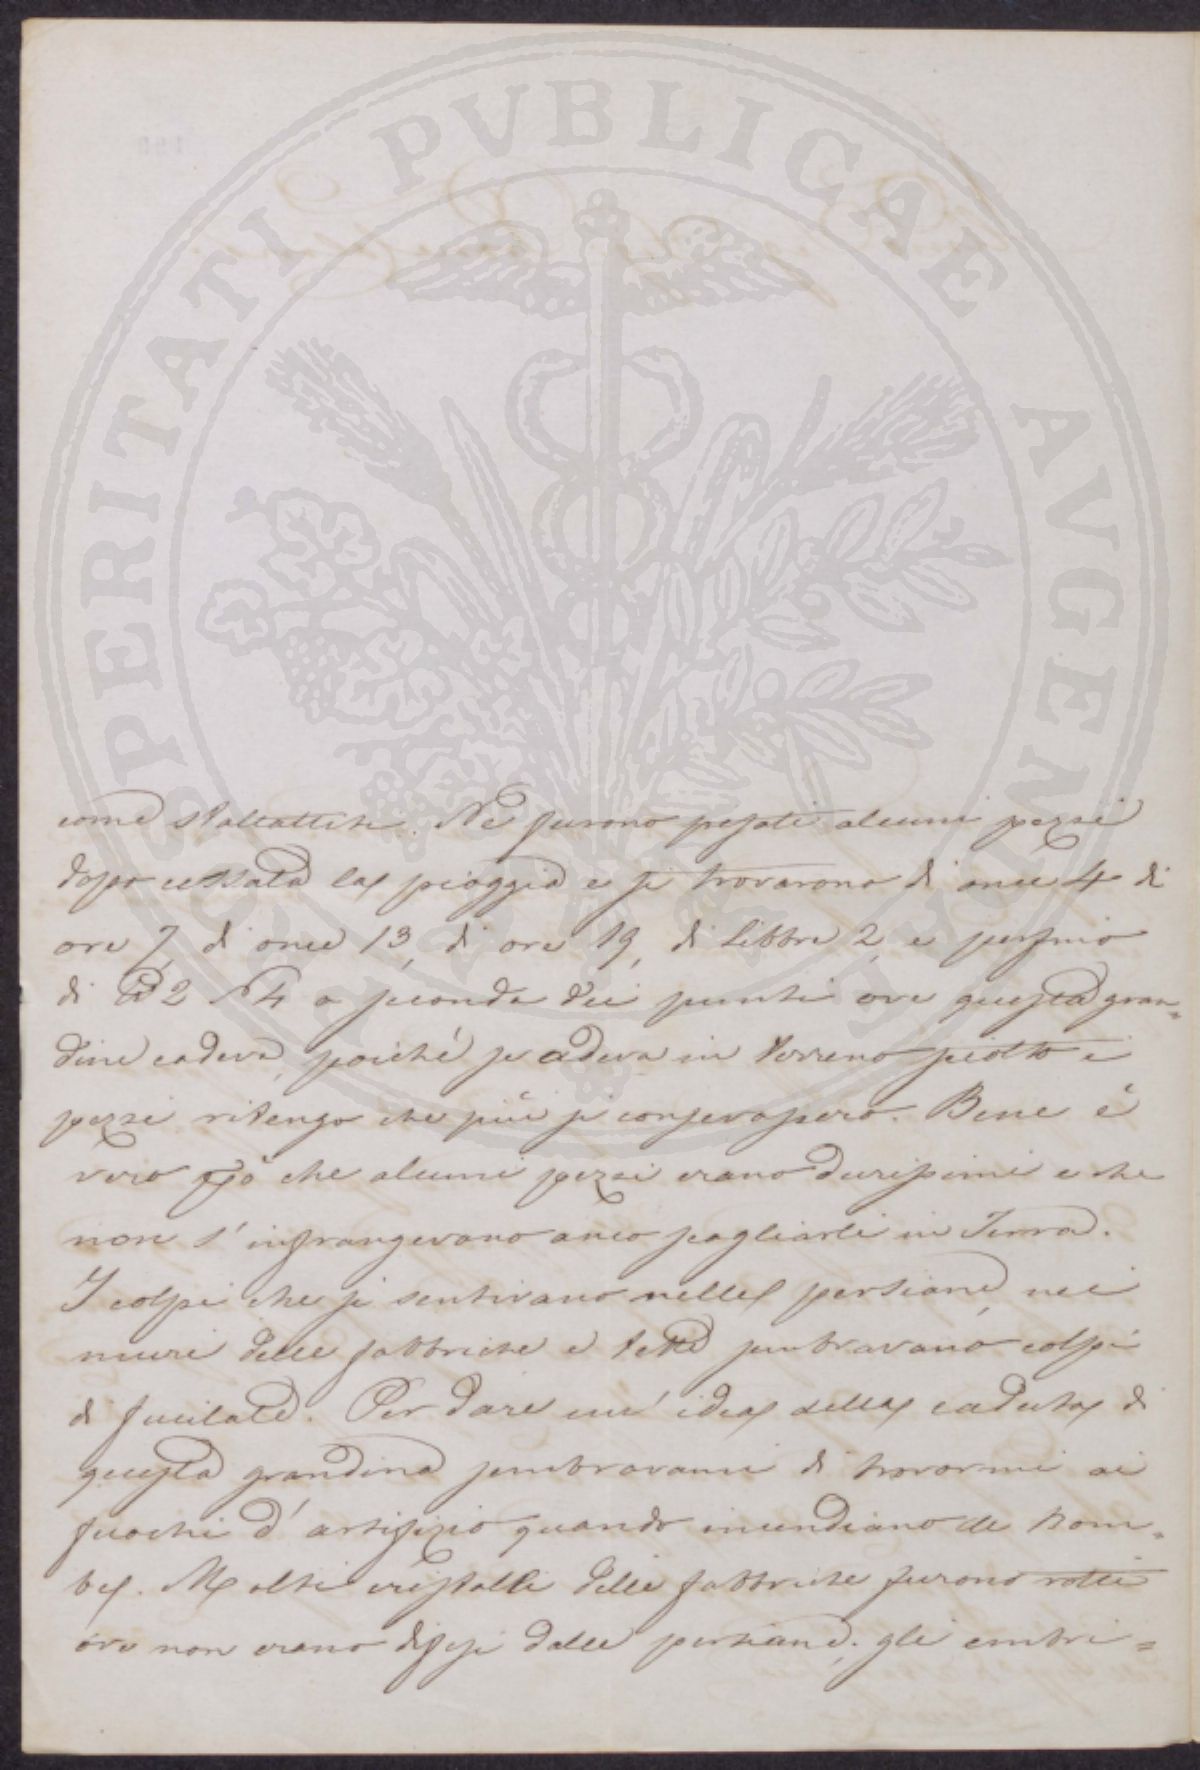 PROSPERITATI PVBLICAE AVGENDAE
come stalattiti. Ne furono pesati alcuni pezzi
dopo cessata la pioggia e si trovarono di once 4 di
once 7, di once 13, di once 19, di libbre 2, e perfino
di 2 a seconda dei punti ove questa gran=
dine cadeva, poiché se cadeva in terreno sciolto i
pezzi ritengo che più si conservassero. Bene è
vero però che alcuni pezzi erano durissimi e che
non s'infrangevano anco scagliarli in Terra.
I colpi che si sentivano nelle persiane, nei
muri delle fabbriche e tetti sembravano colpi
di fucilate. Per dare un'idea della caduta di
questa grandine sembravami di trovarmi ai
fuochi d'artifizio quando incendiano le trom=
be. Molti cristalli delle fabbriche furono rotti
ove non erano difesi dalle persiane; gli embri=